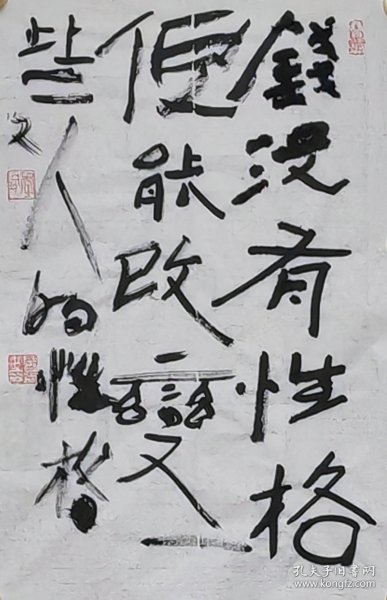 錢没有性格
便能改變一
些人的性格
孔夫子旧书网
www.kongfz.com